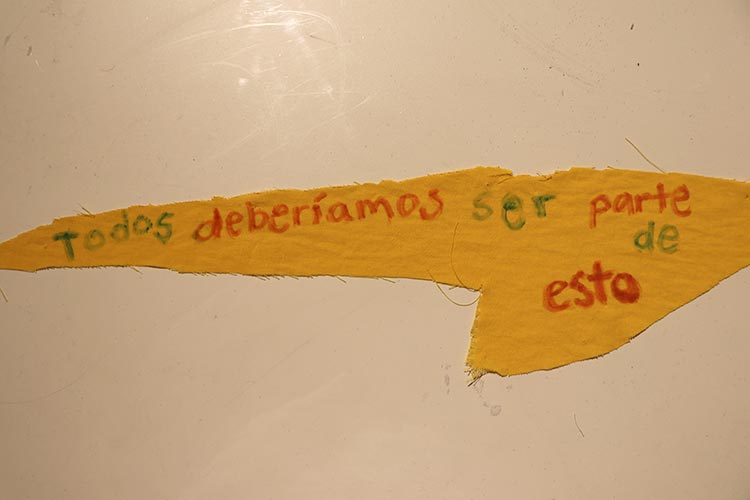 Todos deberíamos ser parte
de
esto